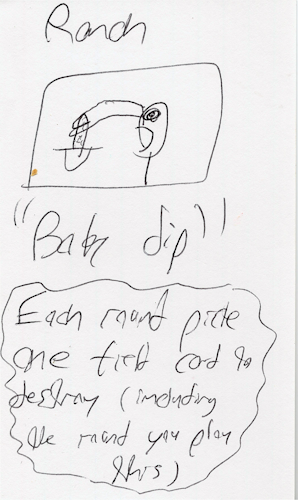 Ranch
"Baby dip"
Each round pick
one field card to
destroy (including
the round you play
this)